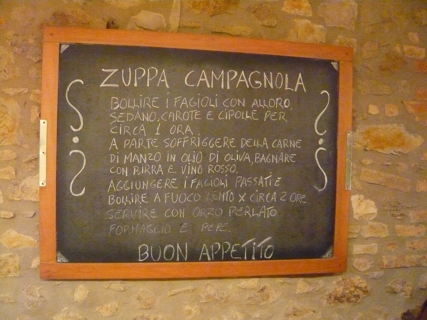 ZUPPA CAMPAGNOLA
BOLLIRE I FAGIOLI CON ALLORO,
SEDANO, CAROTE E CIPOLLE PER
CIRCA 1 ORA.
A PARTE SOFFRIGGERE DELLA CARNE
DI MANZO IN OLIO DI OLIVA, BAGNARE
CON BIRRA E VINO ROSSO.
AGGIUNGERE I FAGIOLI PASSATI E
BOLLIRE A FUOCO LENTO X CIRCA 2 ORE
SERVIRE CON ORZO PERLATO
FORMAGGIO E PEPE.
BUON APPETITO